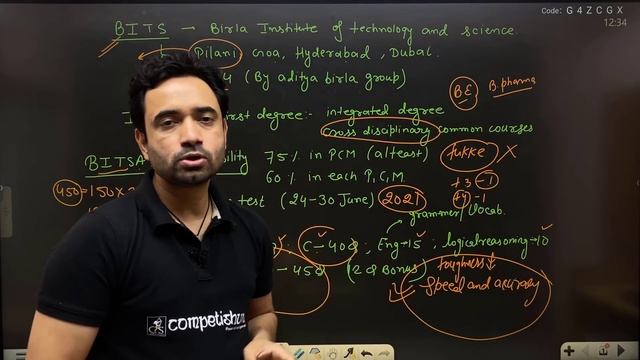 Code: G 4 Z C G X
12:34
BITS → Birla Institute of technology and science.
Pilani Goa, Hyderabad, Dubai.
(By aditya birla group)
BE B.pharma
irst degree:- integrated degree
cross disciplinary common courses
BITSA bility 75% in PCM (atleast) tukke X
60% in each P, C, M. +3 -1
450 = 150×
test (24-30 June) 2021 +4 -1
grammer/Vocab.
C-40Q ; Eng→15 ; logicalreasoning→10
- 45Q (12 Q Bonus) toughness↓
Speed and accuracy
competishun